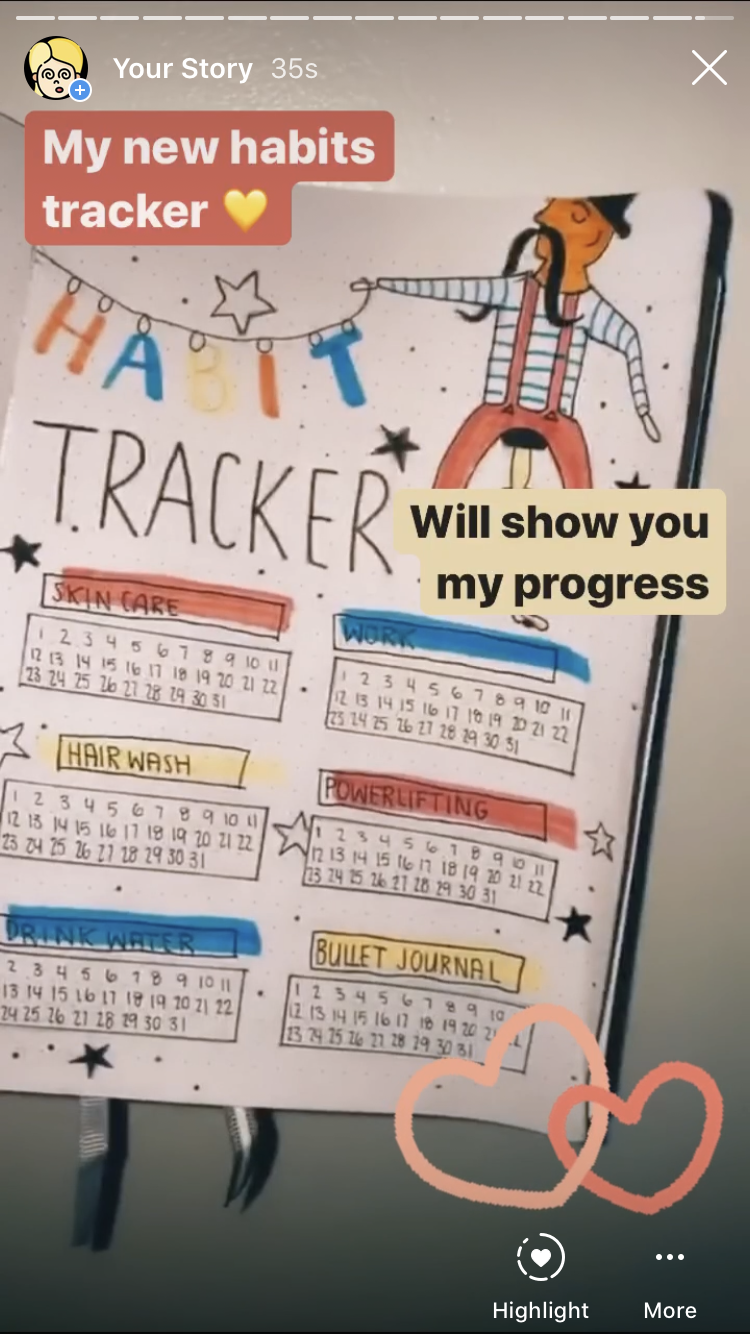 Your Story 35s
My new habits
tracker 💛
HABIT
TRACKER
Will show you
my progress
SKIN CARE
1 2 3 4 5 6 7 8 9 10 11
12 13 14 15 16 17 18 19 20 21 22
23 24 25 26 27 28 29 30 31
WORK
1 2 3 4 5 6 7 8 9 10 11
12 13 14 15 16 17 18 19 20 21 22
23 24 25 26 27 28 29 30 31
HAIR WASH
1 2 3 4 5 6 7 8 9 10 11
12 13 14 15 16 17 18 19 20 21 22
23 24 25 26 27 28 29 30 31
POWERLIFTING
1 2 3 4 5 6 7 8 9 10 11
12 13 14 15 16 17 18 19 20 21 22
23 24 25 26 27 28 29 30 31
DRINK WATER
2 3 4 5 6 7 8 9 10 11
13 14 15 16 17 18 19 20 21 22
24 25 26 27 28 29 30 31
BULLET JOURNAL
1 2 3 4 5 6 7 8 9 10
12 13 14 15 16 17 18 19 20
23 24 25 26 27 28 29 30 31
Highlight
More